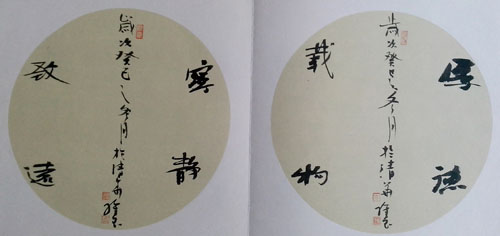 厚德
載物
歲次癸巳之冬月於清華
寧静
致遠
歲次癸巳之冬月於清華